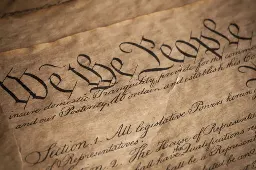 We the People
insure domestic Tranquility, provide for the common
and our Posterity, do ordain and establish this C
Section. 1. All legislative Powers herein
Representatives.
Section. 2. The House of Representati
shall have Qualifications
shall be a Represen